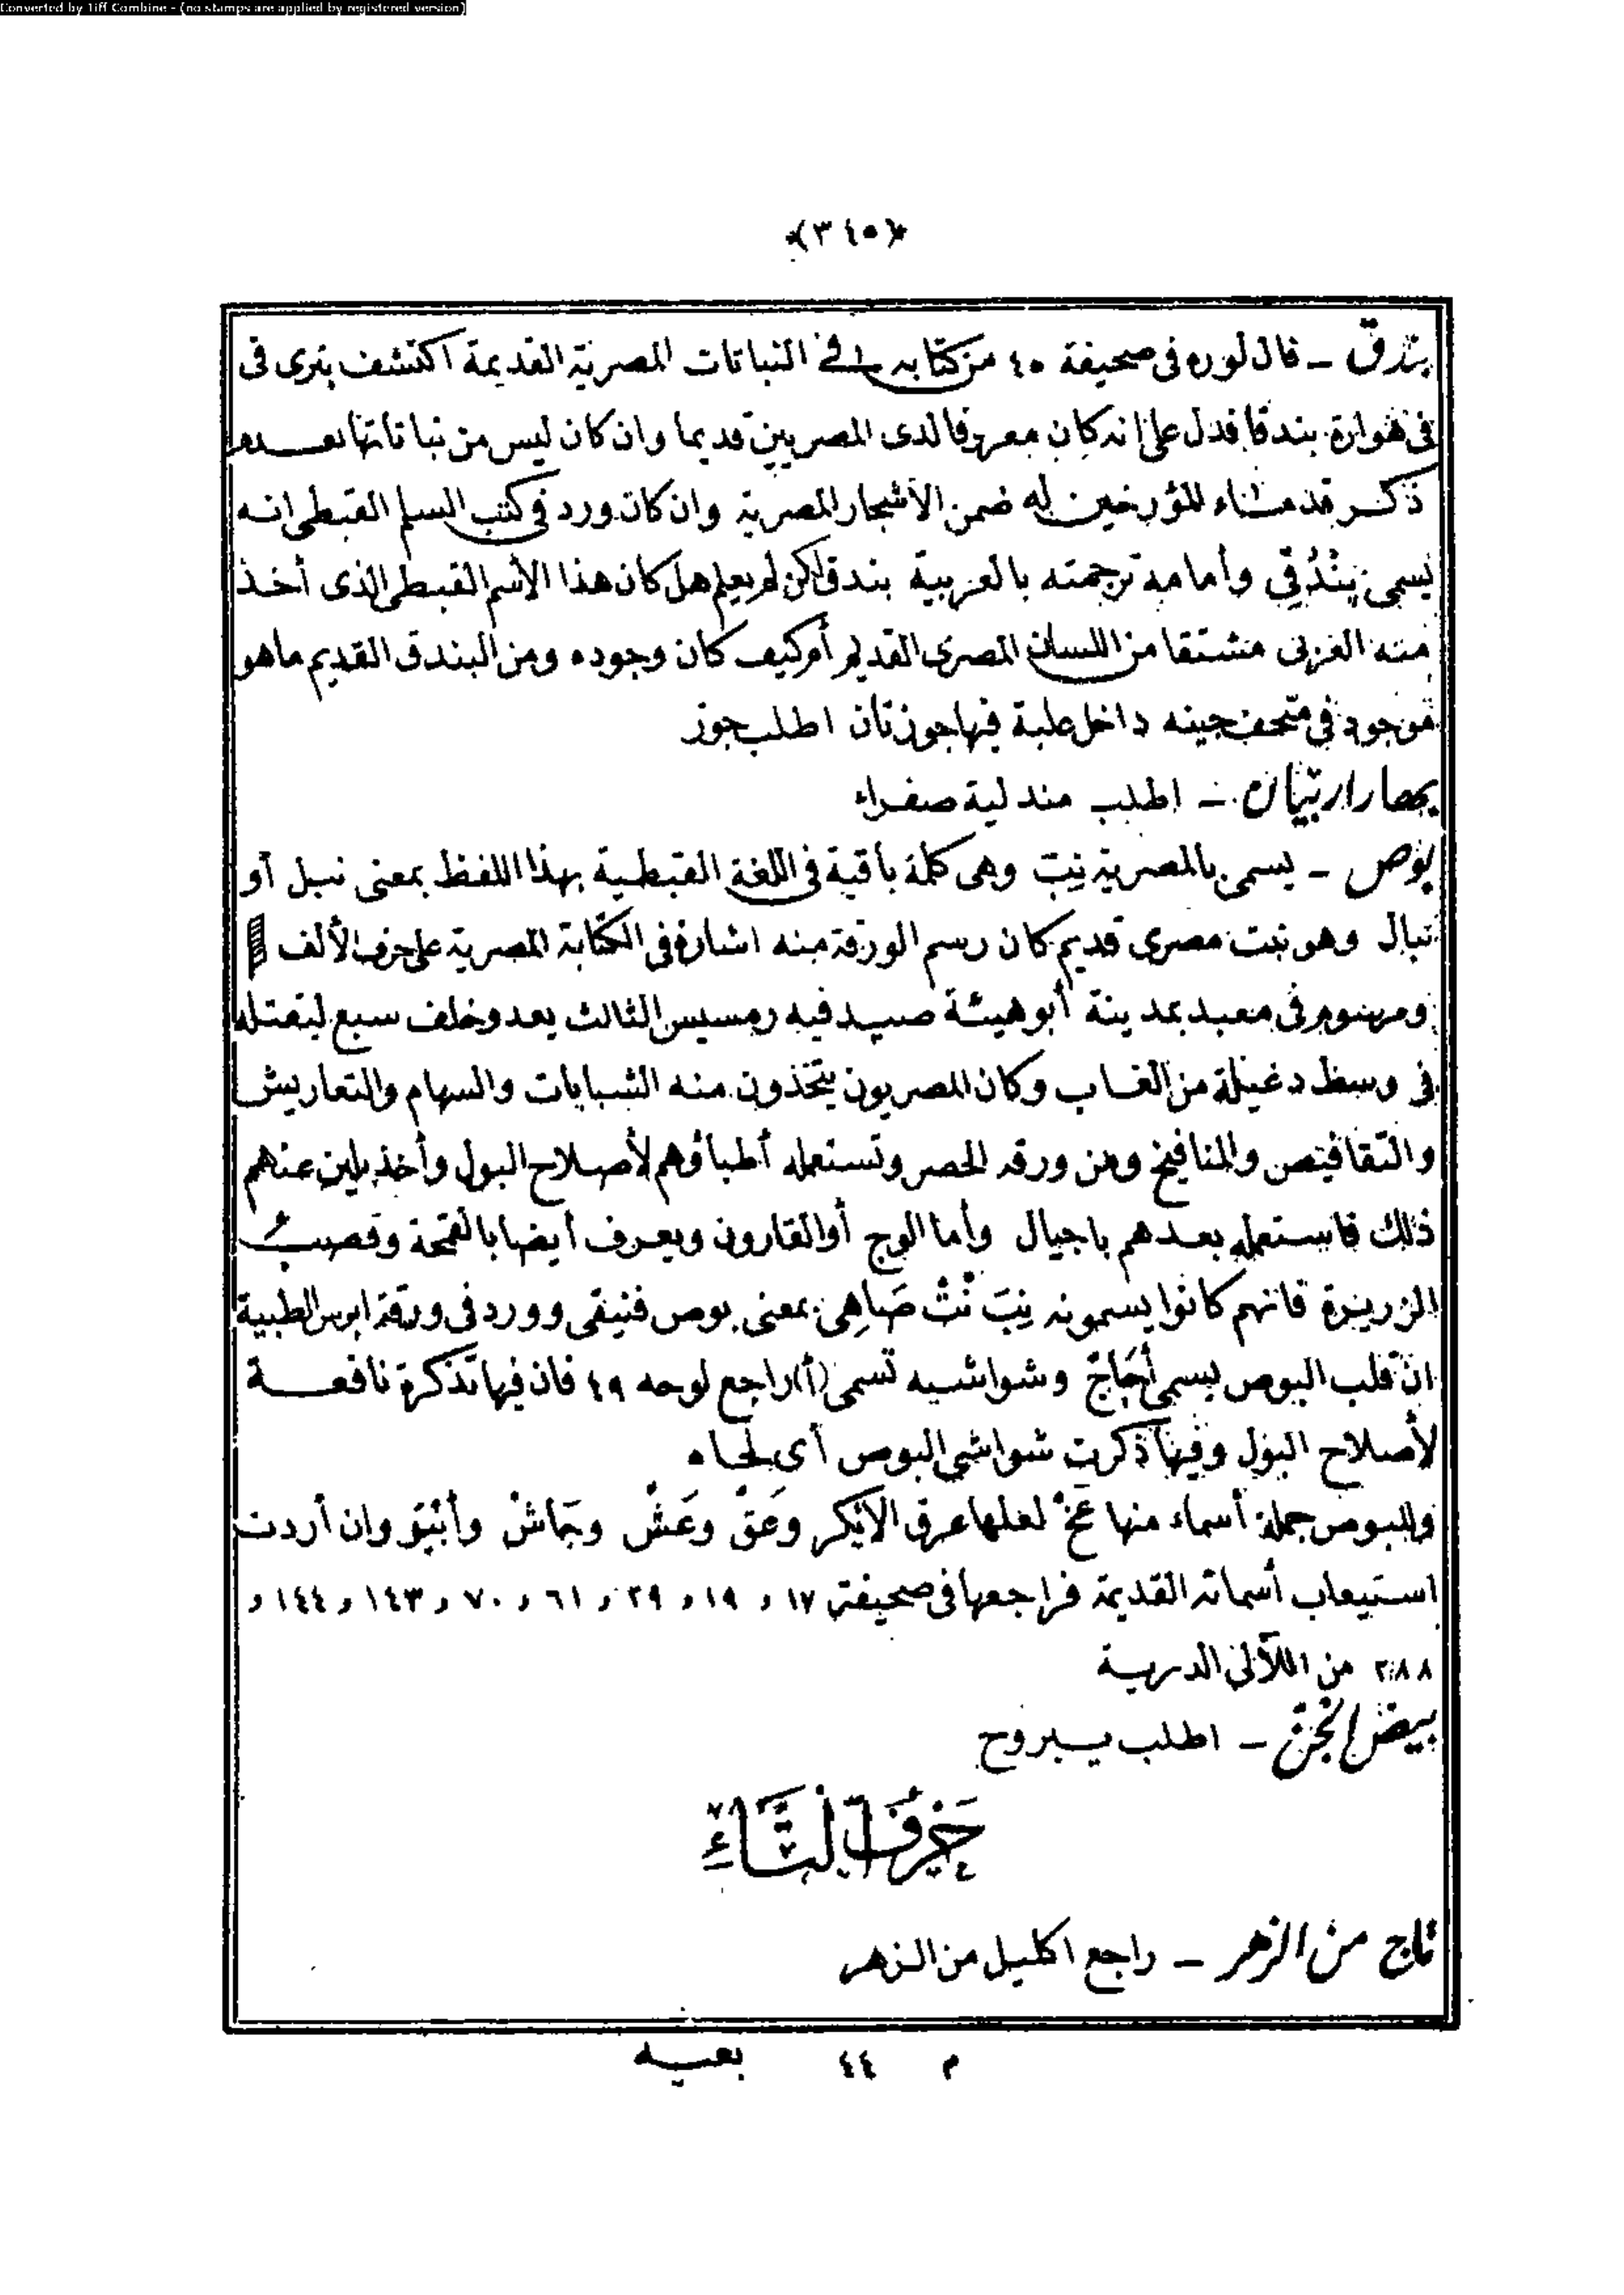 Converted by Tiff Combine - (no stamps are applied by registered version)
﴿٣٤٥﴾
بندق – قال لوره فى صحيفة ٤٠ من كتابه فى النباتات المصرية القديمة اكتشف بترى فى
فى هوارة بندقا فدل على انه كان معروفا لدى المصريين قديما وان كان ليس من نباتاتها لعدم
ذكر قدماء المؤرخين له ضمن الأشجار المصرية وان كان ورد فى كتب السلم القبطى انه
يسمى بِنْدُقِى وأمامه ترجمته بالعربية بندق لكن لم يعلم هل كان هذا الاسم القبطى الذى أخذ
منه العربى مشتقا من اللسان المصرى القديم أم كيف كان وجوده ومن البندق القديم ماهو
موجود فى متحف جينه داخل علبة فيها جوزتان اطلب جوز
بهار اربيان – اطلب مندلية صفراء
بوص – يسمى بالمصرية نِبَ وهى كلمة باقية فى اللغة القبطية بهذا اللفظ بمعنى نبل أو
نبال وهو نبت مصرى قديم كان رسم الورقة منه اشارة فى الكتابة المصرية على حرف الألف
ومرسوم فى معبد بمدينة أبو هيئة صيد فيه رمسيس الثالث يعدو خلف سبع ليقتله
فى وسط دغيلة من الغاب وكان المصريون يتخذون منه الشبابات والسهام والتعاريش
والتقافيص والمنافيخ ومن ورقه الحصر وتستعمله أطباؤهم لأصلاح البول وأخذ بلين عنهم
ذلك فاستعمله بعدهم باجيال وأما الوج أو القارون ويعرف أيضا بالقمحة وقصب
الزريرة فانهم كانوا يسمونه نِبَ نْتْ صَاهِى بمعنى بوص فنيقى وورد فى ورقة ابرس الطبية
ان قلب البوص يسمى أجَاجْ وشواشيه تسمى (أ) راجع لوحه ٤٩ فان فيها تذكرة نافعة
لأصلاح البول وفيها ذكرت شواشى البوص أى لحاه
وللبوص جملة أسماء منها عَخْ لعلها عرق الايكر وعَقْ وعَشْ وبَماشْ وأنْبَوْ وان أردت
استيعاب أسمائه القديمة فراجعها فى صحيفة ١٧ و ١٩ و ٢٩ و ٦١ و ٧٠ و ١٤٣ و ١٤٤ و
٢٨٨ من اللآلئ الدرية
بيض الجن – اطلب يبروح
حَرْفُ التَّاءِ
تاج من الزهر – راجع اكليل من الزهر
م ٤٤